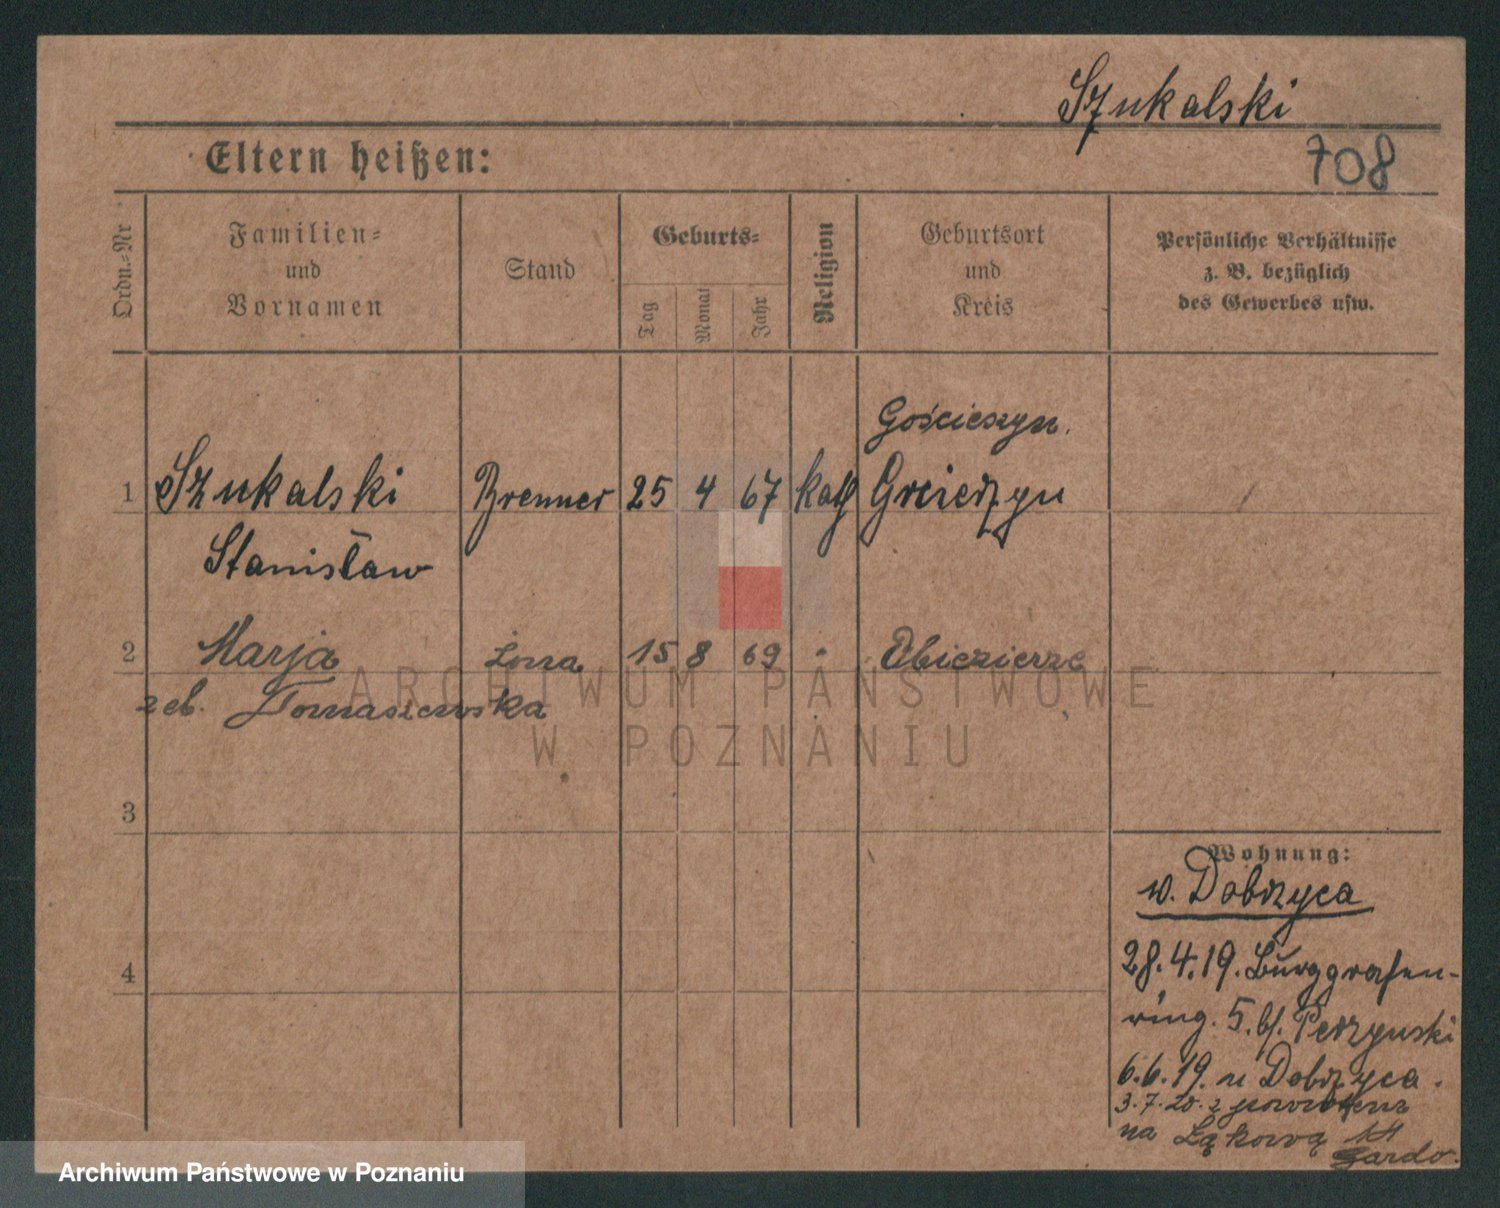 Szukalski
Eltern heißen:
708
Ordn.-Nr
Familien-
und
Vornamen
Stand
Geburts-
Tag
Monat
Jahr
Religion
Geburtsort
und
Kreis
Persönliche Verhältnisse
z. B. bezüglich
des Gewerbes usw.
Gościeszyn.
1 Szukalski Brenner 25 4 67 kath
Stanisław
2 Marja żona 15 8 69 Obiezierze
zeb. Tomaszewska
ARCHIWUM PAŃSTWOWE
W POZNANIU
3
Wohnung:
w. Dobrzyca
4
28.4.19. Burggrafen-
ring. 5. b/. Petrzynski
6.6.19. n Dobrzyca.
3.7.20. z powrotem
na Łąkową 14
Archiwum Państwowe w Poznaniu